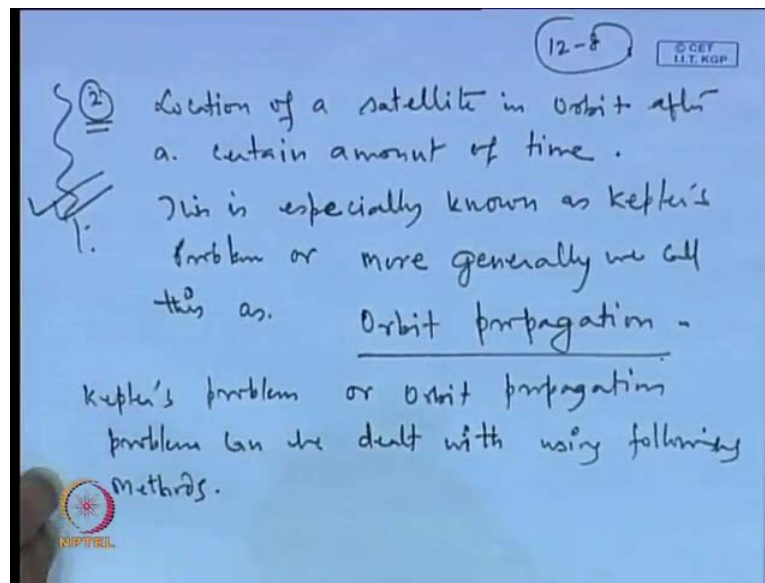 12-8
© CET
I.I.T. KGP
② Location of a satellite in orbit after
a. certain amount of time.
This is especially known as Kepler's
problem or more generally we call
this as. Orbit propagation -
Kepler's problem or orbit propagation
problem can be dealt with using following
methods.
NPTEL